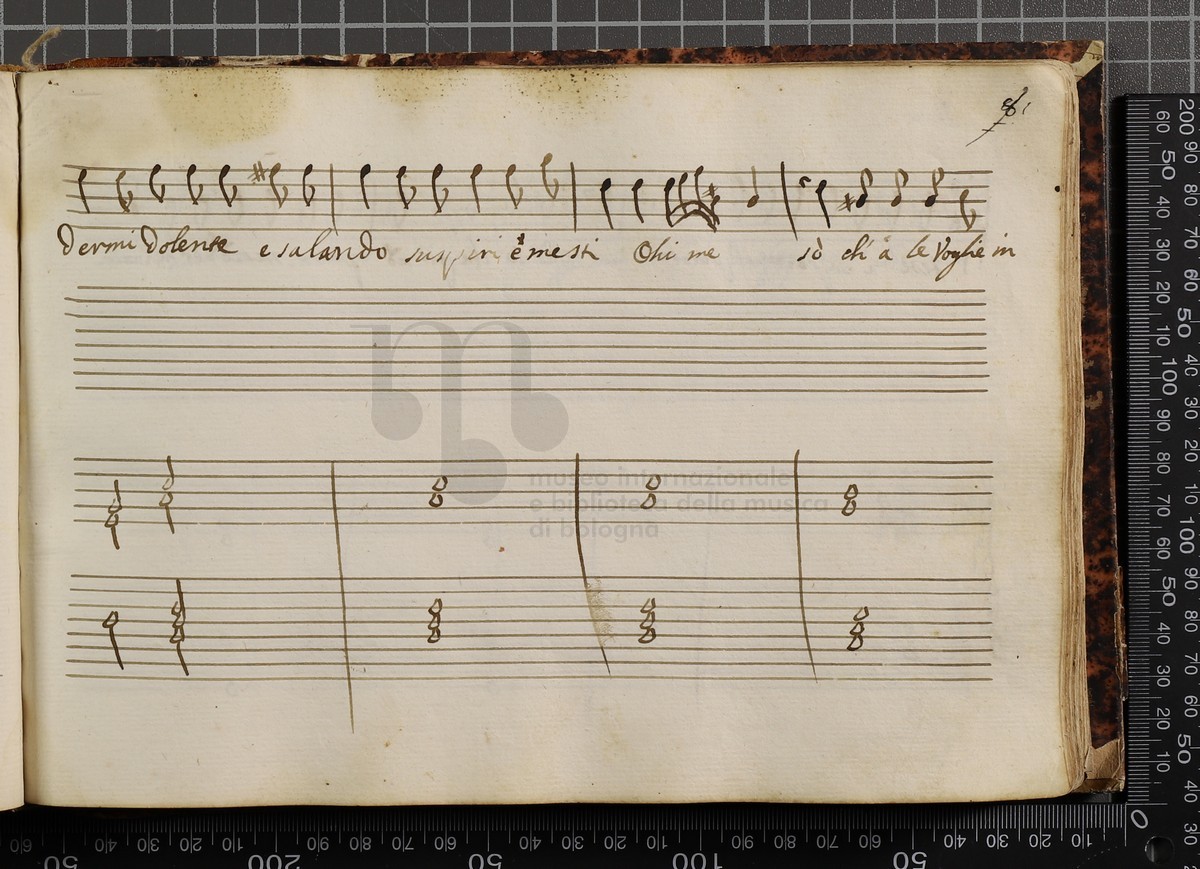 8
dermi dolente esalando suspiri è mesti Ohi me sò ch'a le voglie in
museo internazionale
e biblioteca della musica
di bologna